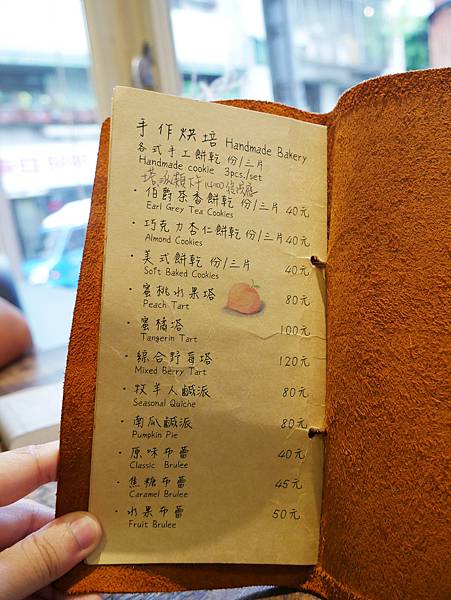 手作烘培 Handmade Bakery
各式手工餅乾 份/三片
Handmade cookie 3pcs/set
塔派類下午14:00後供應
・伯爵茶香餅乾 份/三片 40元
Earl Grey Tea Cookies
・巧克力杏仁餅乾 份/三片 40元
Almond Cookies
・美式餅乾 份/三片 40元
Soft Baked Cookies
・蜜桃水果塔 80元
Peach Tart
・蜜橘塔 100元
Tangerin Tart
・綜合野莓塔 120元
Mixed Berry Tart
・牧羊人鹹派 80元
Seasonal Quiche
・南瓜鹹派 80元
Pumpkin Pie
・原味布蕾 40元
Classic Brulee
・焦糖布蕾 45元
Caramel Brulee
・水果布蕾 50元
Fruit Brulee